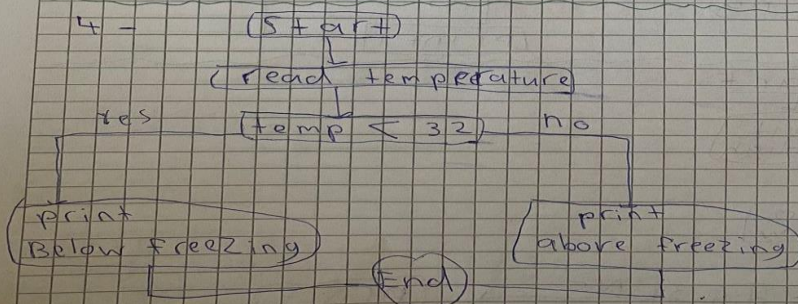 4 - Start
read temperature
Yes temp < 32 no
print
Below freezing
print
above freezing
End